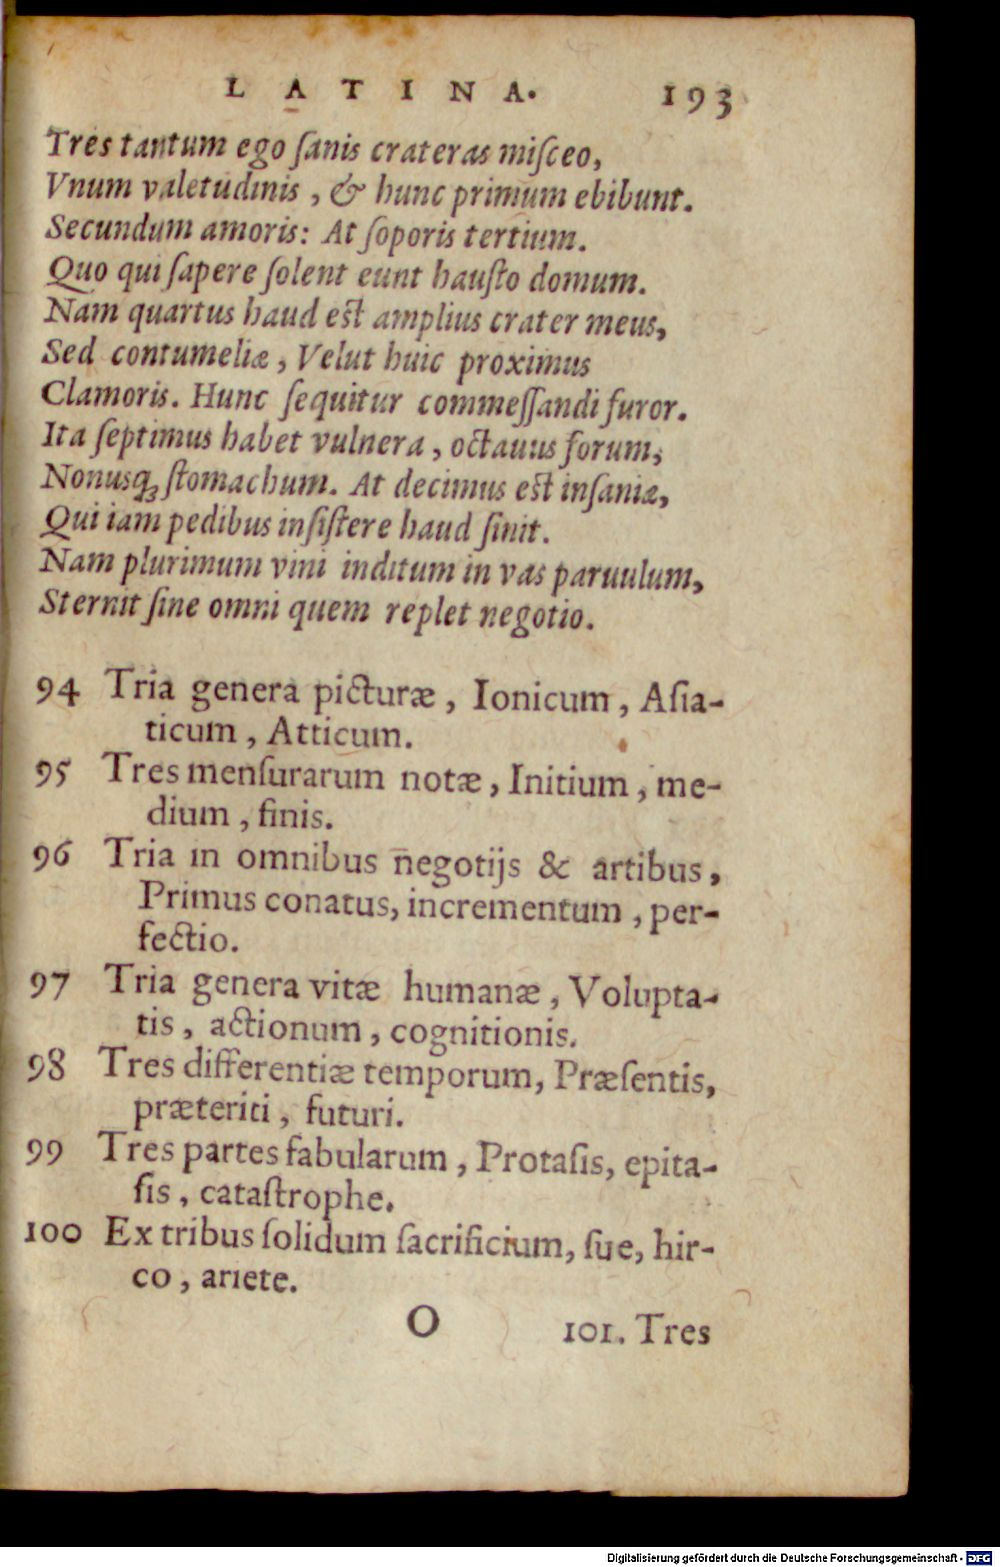 LATINA. 193
Tres tantum ego ſanis crateras miſceo,
Vnum valetudinis, & hunc primum ebibunt.
Secundum amoris: At ſoporis tertium.
Quo qui ſapere ſolent eunt hauſto domum.
Nam quartus haud eſt amplius crater meus,
Sed contumeliæ, Velut huic proximus
Clamoris. Hunc ſequitur commeſſandi furor.
Ita ſeptimus habet vulnera, octauus forum,
Nonusqꝫ ſtomachum. At decimus eſt inſaniæ,
Qui iam pedibus inſiſtere haud ſinit.
Nam plurimum vini inditum in vas paruulum,
Sternit ſine omni quem replet negotio.
94 Tria genera picturæ, Ionicum, Aſia-
ticum, Atticum.
95 Tres menſurarum notæ, Initium, me-
dium, finis.
96 Tria in omnibus negotijs & artibus,
Primus conatus, incrementum, per-
fectio.
97 Tria genera vitæ humanæ, Volupta-
tis, actionum, cognitionis.
98 Tres differentiæ temporum, Præſentis,
præteriti, futuri.
99 Tres partes fabularum, Protaſis, epita-
ſis, cataſtrophe.
100 Ex tribus ſolidum ſacrificium, ſue, hir-
co, ariete.
O 101. Tres
Digitalisierung gefördert durch die Deutsche Forschungsgemeinschaft - DFG